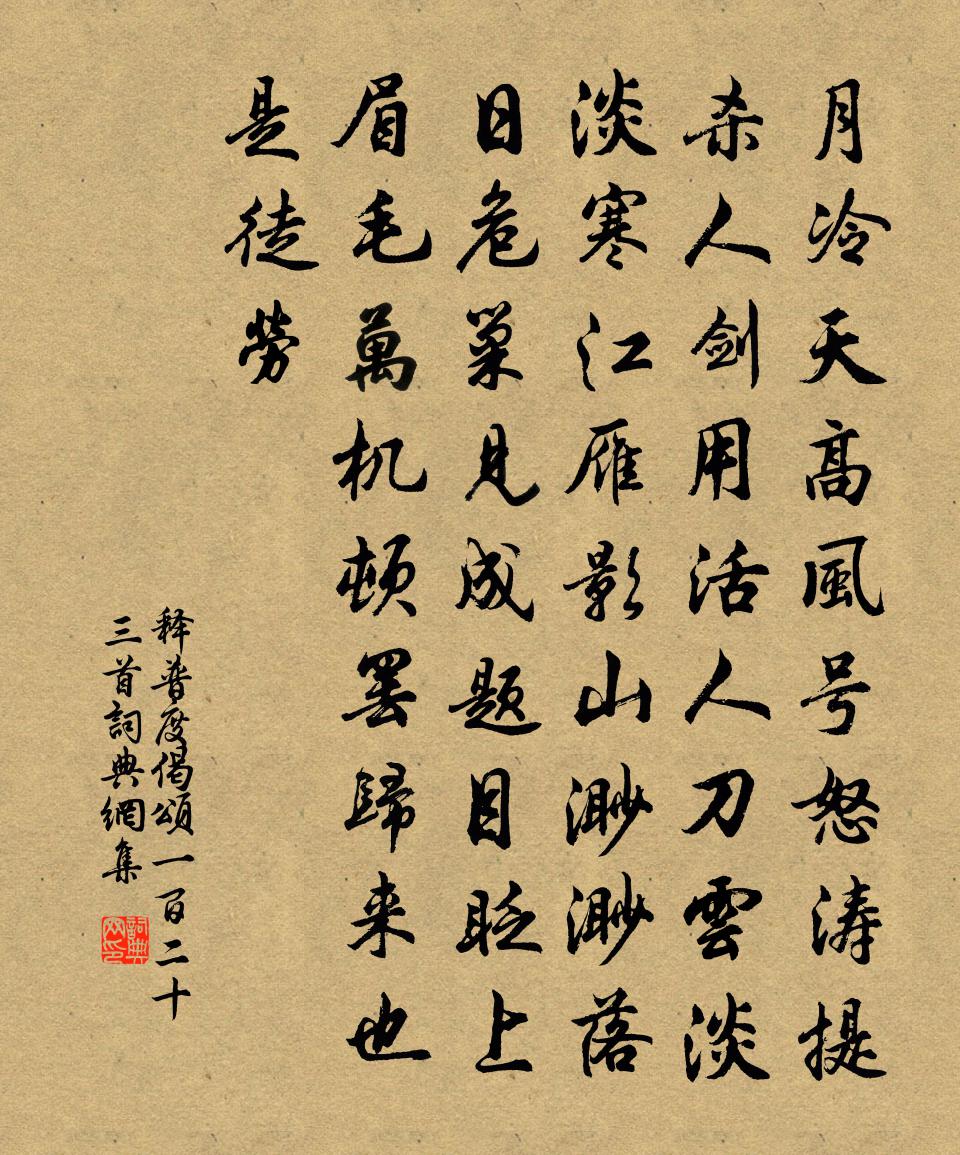 月冷天高風号怒涛提
杀人剑用活人刀雲淡
淡寒江雁影山渺渺落
日危巢見成題目眨上
眉毛萬机頓罢歸来也
是徒勞
释普度偈頌一百二十
三首詞典網集
詞典网印